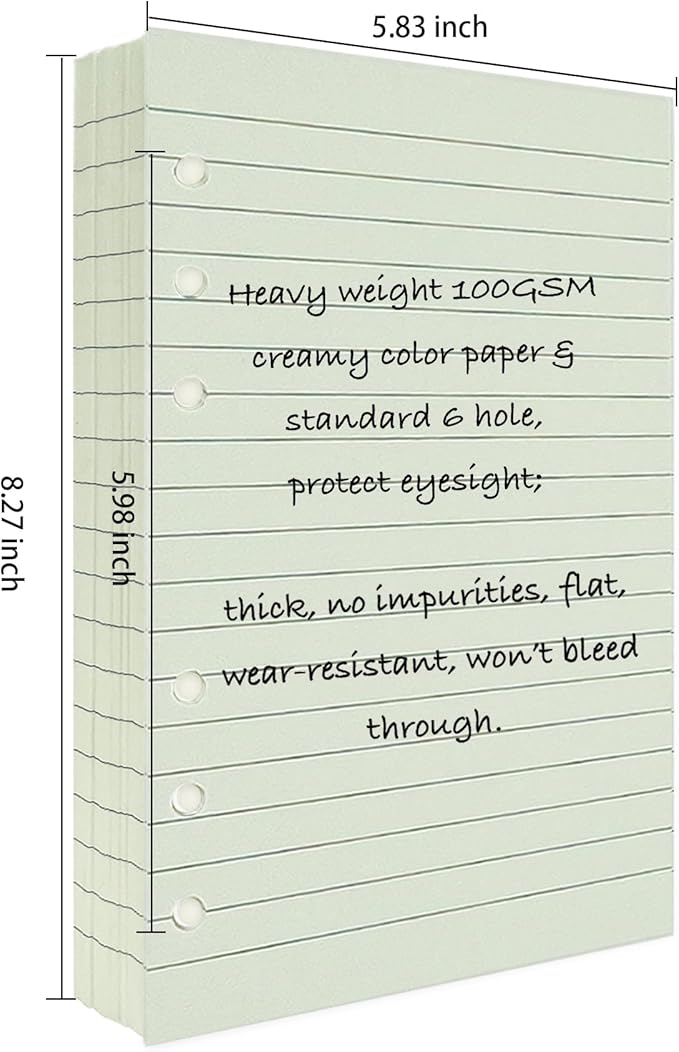 5.83 inch
8.27 inch
5.98 inch
Heavy weight 100GSM
creamy color paper &
standard 6 hole,
protect eyesight;
thick, no impurities, flat,
wear-resistant, won't bleed
through.